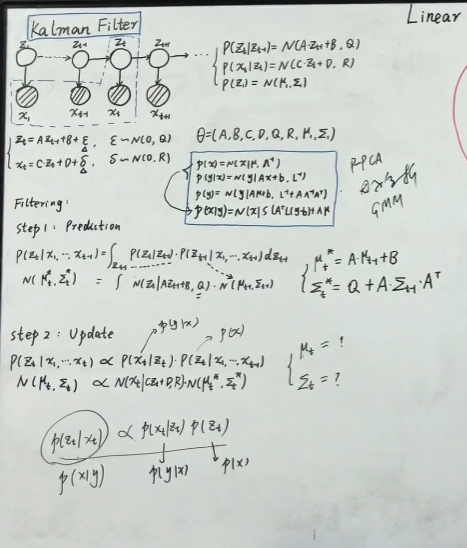 Kalman Filter
Linear
Z₁ Zₜ₋₁ Zₜ Zₜ₊₁
x₁ xₜ₋₁ xₜ xₜ₊₁
P(Zₜ|Zₜ₋₁) = N(A·Zₜ₋₁+B, Q)
P(xₜ|Zₜ) = N(C·Zₜ+D, R)
P(Z₁) = N(μ₁, Σ₁)
Zₜ = A Zₜ₋₁ + B + ε, ε ~ N(0, Q)
xₜ = C·Zₜ + D + δ, δ ~ N(0, R)
θ = (A, B, C, D, Q, R, μ₁, Σ₁)
p(x) = N(x|μ, Λ⁻¹)
p(y|x) = N(y|Ax+b, L⁻¹)
p(y) = N(y|Aμ+b, L⁻¹+AΛ⁻¹Aᵀ)
p(x|y) = N(x|Σ{AᵀL(y-b)+Λμ
P-PCA
GMM
Filtering:
step 1: Prediction
P(Zₜ|x₁,…xₜ₋₁) = ∫_Zₜ₋₁ P(Zₜ|Zₜ₋₁)·P(Zₜ₋₁|x₁,…,xₜ₋₁) dZₜ₋₁
N(μₜ*, Σₜ*) = ∫ N(Zₜ|AZₜ₋₁+B, Q)·N(μₜ₋₁, Σₜ₋₁)
μₜ* = A·μₜ₋₁+B
Σₜ* = Q + A·Σₜ₋₁·Aᵀ
step 2: Update
p(y|x) p(x)
P(Zₜ|x₁,…xₜ) ∝ P(xₜ|Zₜ)·P(Zₜ|x₁,…,xₜ₋₁)
N(μₜ, Σₜ) ∝ N(xₜ|CZₜ+D,R)·N(μₜ*, Σₜ*)
μₜ = ?
Σₜ = ?
p(Zₜ|xₜ) ∝ p(xₜ|Zₜ) p(Zₜ)
p(x|y) p(y|x) p(x)